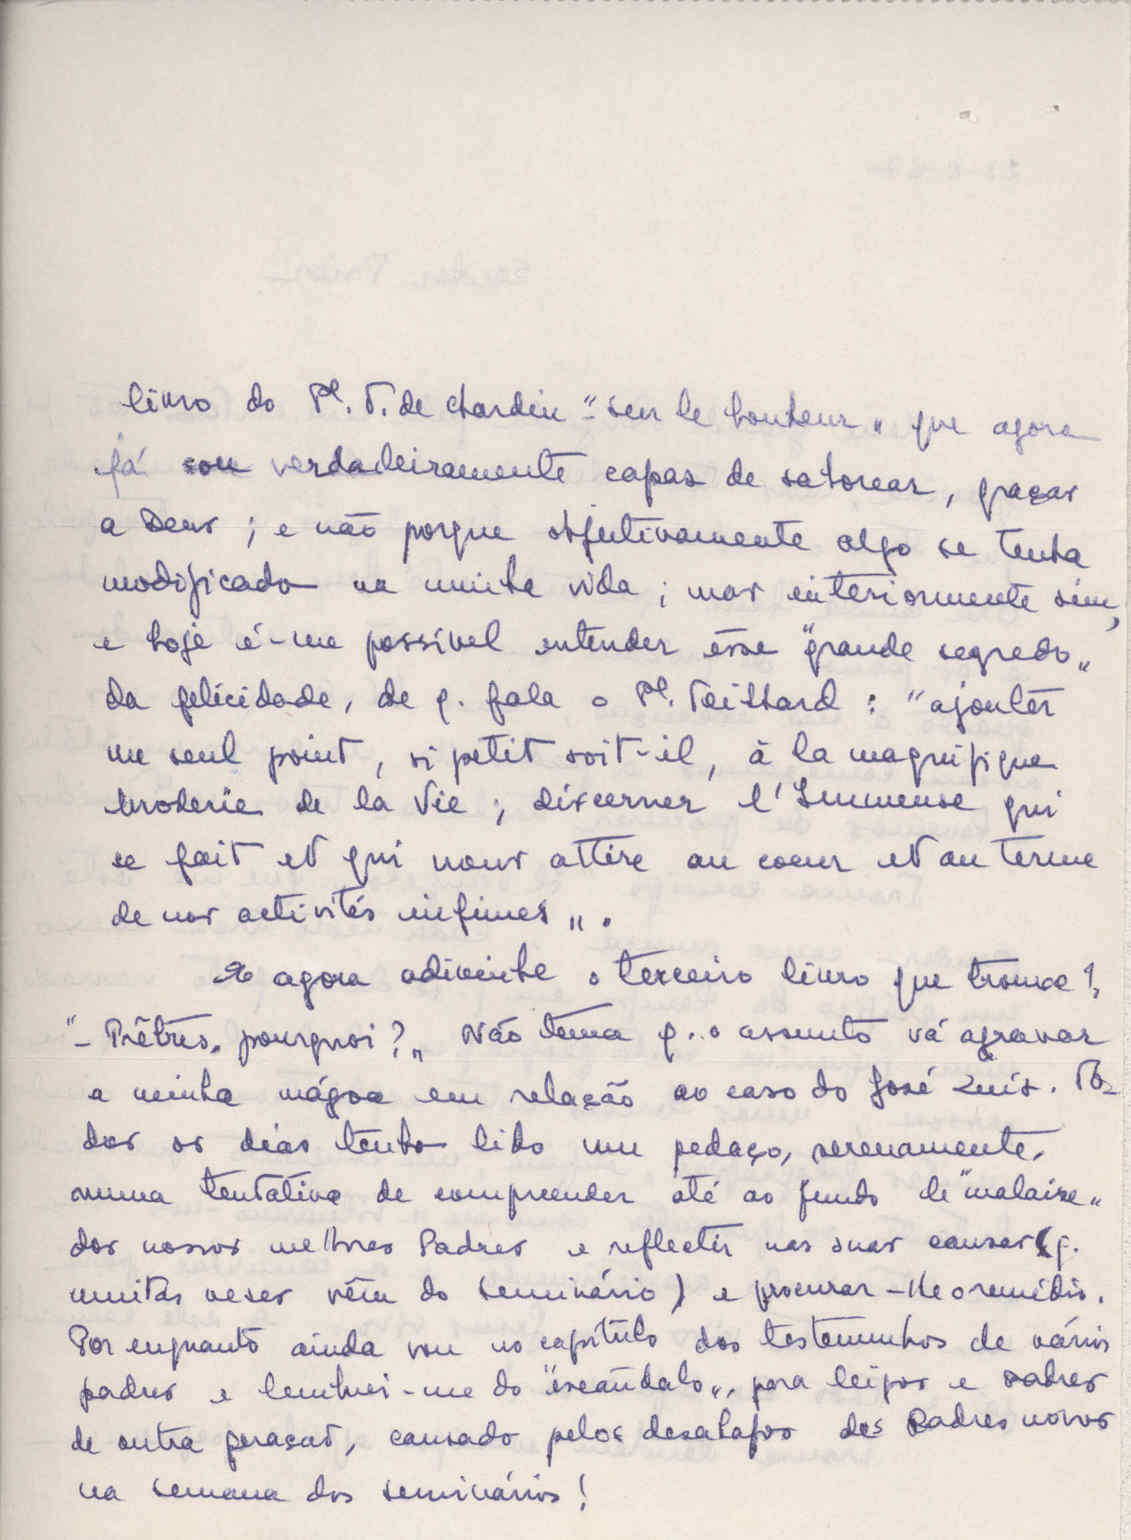 livro do Pe. T. de Chardin "- Sur le bonheur" que agora
já sou verdadeiramente capaz de saborear, graças
a Deus; e não porque objectivamente algo se tenha
modificado na minha vida; mas interiormente sim,
e hoje é-me possível entender êsse "grande segredo"
da felicidade, de q. fala o Pe. Teilhard: "ajouter
un seul point, si petit soit-il, à la magnifique
broderie de la Vie; discerner l'Immense qui
se fait et qui nous attire au coeur et au terme
de nos activités infimes".
E agora adivinhe o terceiro livro que trouxe!,
"- Prêtres, pourquoi?" Não tema q. o assunto vá agravar
a minha mágoa em relação ao caso do José Luís. To-
dos os dias tenho lido um pedaço, serenamente,
numa tentativa de compreender até ao fundo le "malaise"
dos nossos melhores Padres e reflectir nas suas causas (q.
muitas vezes vêm do Seminário) e procurar-lhe o remédio.
Por enquanto ainda vou no capítulo dos testemunhos de vários
padres e lembrei-me do "escândalo", para leigos e padres
de outra geração, causado pelos desabafos dos Padres novos
na semana dos seminários!